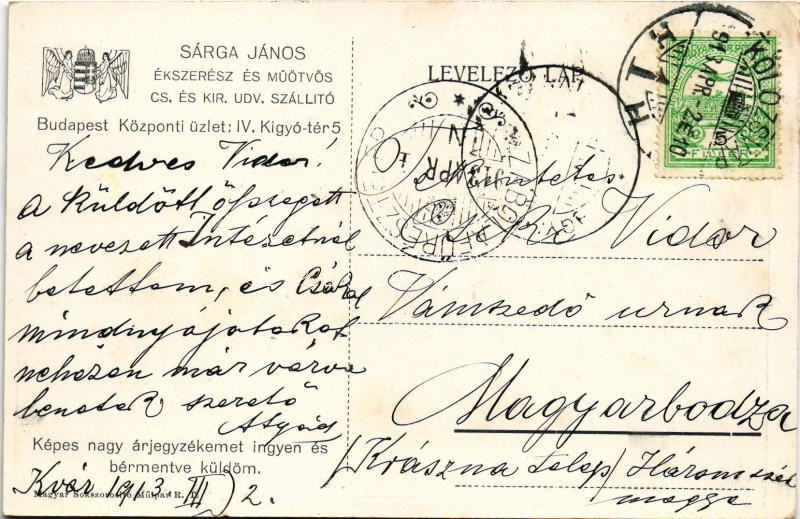 SÁRGA JÁNOS
ÉKSZERÉSZ ÉS MŰÖTVÖS
CS. ÉS KIR. UDV. SZÁLLITÓ
Budapest Központi üzlet: IV. Kigyó-tér 5
LEVELEZŐ LAP.
KOLOZSVÁR
913 APR.-2.E10
Kedves Vidor!
A küldött összeget
a nevezett Intézetnél
betettem, és csókol
mindnyájotokat
nehezen már várva
benetek szerető
Atyád
Képes nagy árjegyzékemet ingyen és
bérmentve küldöm.
Kvár 1913 III/2.
Magyar Sokszorosító Műipar R. T.
Vidor
Vámkezelő urnak
Magyarbodza
/Krászna telep/ Háromszék
megye